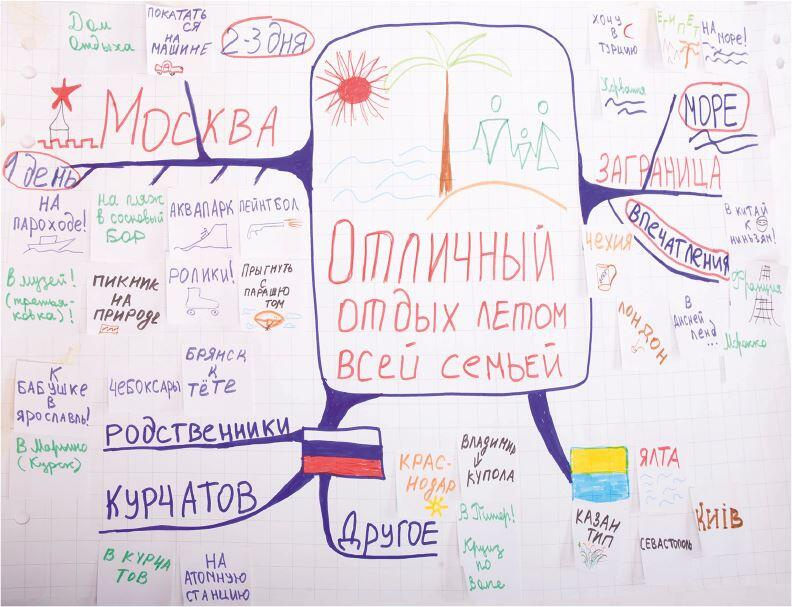 Дом
отдыха
ПОКАТАТЬ
СЯ
НА
МАШИНЕ
2-3 ДНЯ
МОСКВА
1 ДЕНЬ
НА
ПАРОХОДЕ!
НА ПЛЯЖ
В СОСНОВЫЙ
БОР
АКВАПАРК
ПЕЙНТБОЛ
В МУЗЕЙ!
(ТРЕТЬЯ-
КОВКА)!
ПИКНИК
НА
ПРИРОДЕ
РОЛИКИ!
ПРЫГНУТЬ
С
ПАРАШЮ
ТОМ
ОТЛИЧНЫЙ
ОТДЫХ ЛЕТОМ
ВСЕЙ СЕМЬЕЙ
ХОЧУ
В
ТУРЦИЮ
ЕГИПЕТ
НА
МОРЕ!
Хорватия
МОРЕ
ЗАГРАНИЦА
ВПЕЧАТЛЕНИЯ
ЧЕХИЯ
ЛОНДОН
В
ДИСНЕЙ
ЛЕНД...
В КИТАЙ
К
НИНЬЗЯМ!
Франция
Марокко
К
БАБУШКЕ
В
ЯРОСЛАВЛЬ!
ЧЕБОКСАРЫ
БРЯНСК
К
ТЁТЕ
РОДСТВЕННИКИ
В Марьино
(Курск)
КУРЧАТОВ
В КУРЧА
ТОВ
НА
АТОМНУЮ
СТАНЦИЮ
ДРУГОЕ
КРАС-
НОДАР
ВЛАДИМИР
КУПОЛА
В Питер!
Круиз
по
Волге
КАЗАН
ТИП
ЯЛТА
СЕВАСТОПОЛЬ
КИЇВ